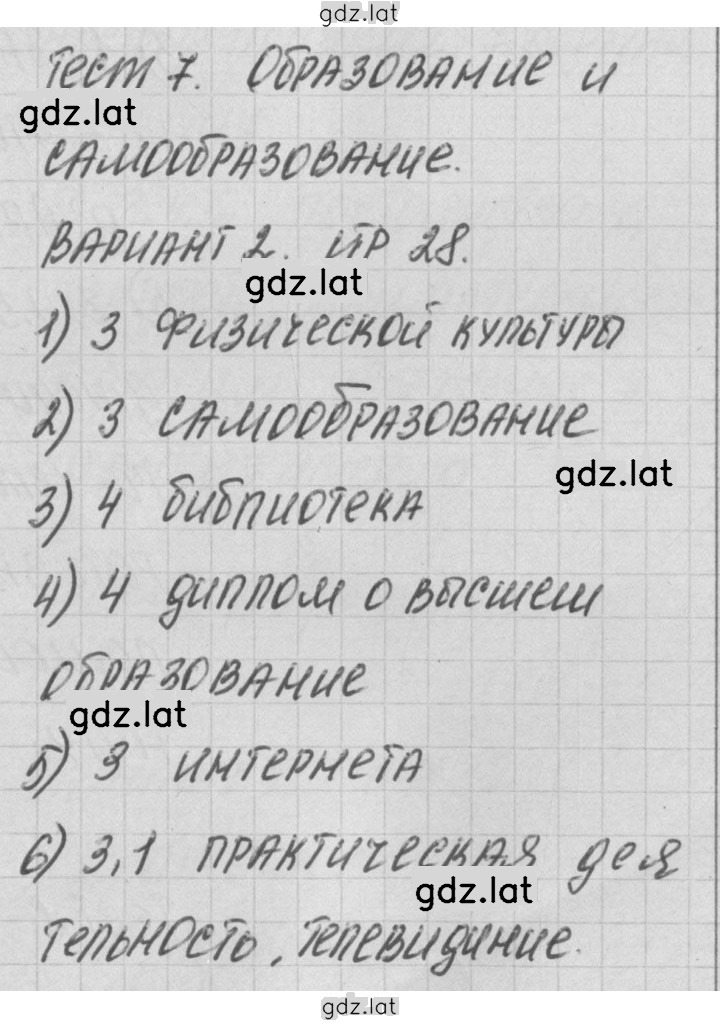 gdz.lat
Тест 7. Образование и
gdz.lat
самообразование.
Вариант 2. стр 28.
gdz.lat
1) 3 физической культуры
2) 3 самообразование
gdz.lat
3) 4 библиотека
4) 4 диплом о высшем
образование
gdz.lat
5) 3 интернета
6) 3,1 практическая дея
gdz.lat
тельность, телевидиние.
gdz.lat